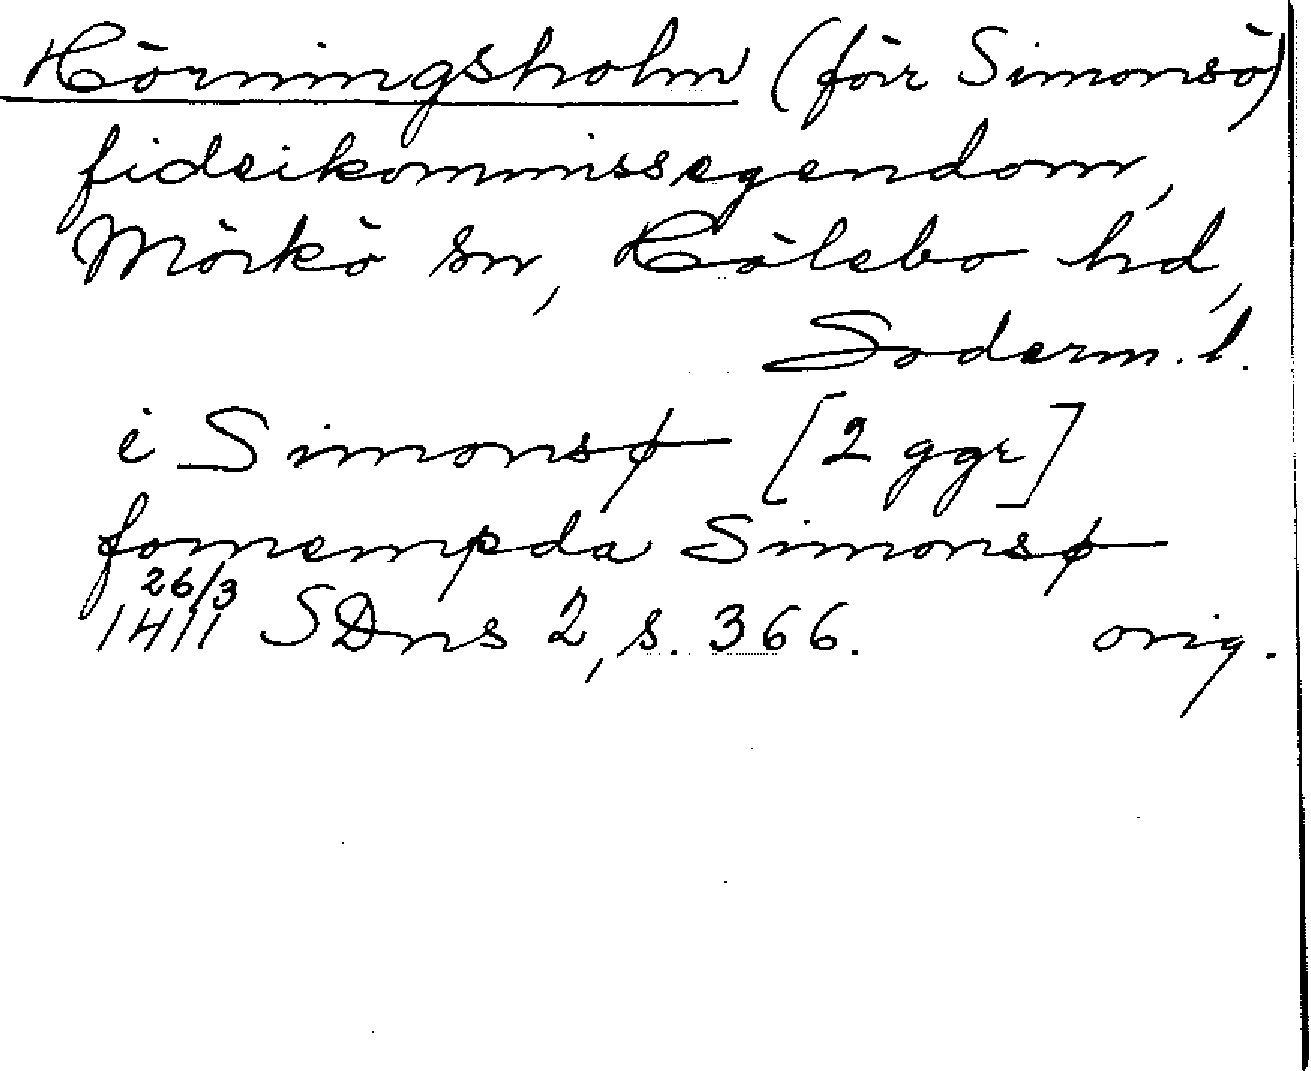 Hörningsholm (förr Simonsö)
fideikommissegendom,
Mörkö sn, Hölebo hd,
Söderm. l.
i Simonsø [2 ggr]
fornempda Simonsø
26/3
1411 SDns 2, s. 366. orig.